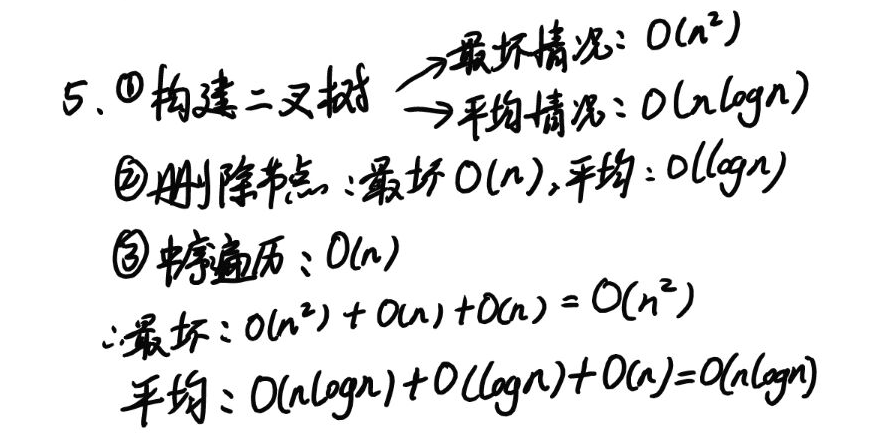 5. ①构建二叉树 → 最坏情况: O(n²)
→ 平均情况: O(nlogn)
②删除节点: 最坏 O(n), 平均: O(logn)
③中序遍历: O(n)
∴最坏: O(n²) + O(n) + O(n) = O(n²)
平均: O(nlogn) + O(logn) + O(n) = O(nlogn)